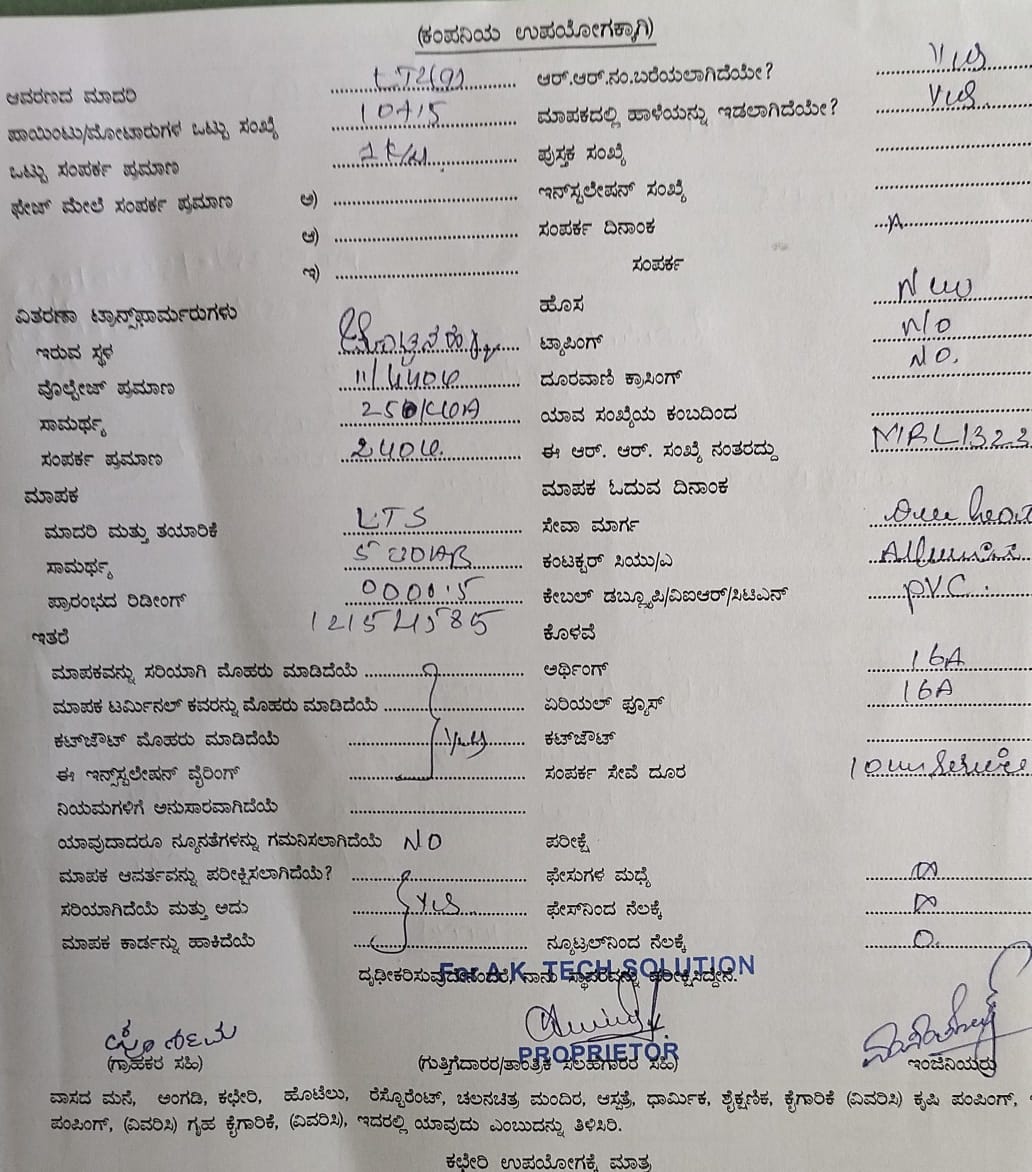 (ಕಂಪನಿಯ ಉಪಯೋಗಕ್ಕಾಗಿ)
ಆವರಣದ ಮಾದರಿ ಆರ್.ಆರ್.ನಂ.ಬರೆಯಲಾಗಿದೆಯೇ?
ಪಾಯಿಂಟು/ಮೋಟಾರುಗಳ ಒಟ್ಟು ಸಂಖ್ಯೆ ಮಾಪಕದಲ್ಲಿ ಹಾಳೆಯನ್ನು ಇಡಲಾಗಿದೆಯೇ?
ಒಟ್ಟು ಸಂಪರ್ಕ ಪ್ರಮಾಣ ಪುಸ್ತಕ ಸಂಖ್ಯೆ
ಫೇಜ್ ಮೇಲೆ ಸಂಪರ್ಕ ಪ್ರಮಾಣ ಅ) ಇನ್‌ಸ್ಟಲೇಷನ್ ಸಂಖ್ಯೆ
ಆ) ಸಂಪರ್ಕ ದಿನಾಂಕ
ಇ) ಸಂಪರ್ಕ
ವಿತರಣಾ ಟ್ರಾನ್ಸ್‌ಫಾರ್ಮರುಗಳು ಹೊಸ New
ಇರುವ ಸ್ಥಳ ಟ್ಯಾಪಿಂಗ್ N/O
ವೊಲ್ಟೇಜ್ ಪ್ರಮಾಣ ದೂರವಾಣಿ ಕ್ರಾಸಿಂಗ್ NO.
ಸಾಮರ್ಥ್ಯ ಯಾವ ಸಂಖ್ಯೆಯ ಕಂಬದಿಂದ
ಸಂಪರ್ಕ ಪ್ರಮಾಣ ಈ ಆರ್. ಆರ್. ಸಂಖ್ಯೆ ನಂತರದ್ದು MBL1323
ಮಾಪಕ ಮಾಪಕ ಓದುವ ದಿನಾಂಕ
ಮಾದರಿ ಮತ್ತು ತಯಾರಿಕೆ LTS ಸೇವಾ ಮಾರ್ಗ
ಸಾಮರ್ಥ್ಯ ಕಂಟಕ್ಟರ್ ಸಿಯು/ಎ
ಪ್ರಾರಂಭದ ರಿಡೀಂಗ್ 0000.5 ಕೇಬಲ್ ಡಬ್ಲ್ಯೂಪಿ/ವಿಐಆರ್/ಸಿಟಿಎಸ್ PVC.
ಇತರೆ 12154585 ಕೊಳವೆ
ಮಾಪಕವನ್ನು ಸರಿಯಾಗಿ ಮೊಹರು ಮಾಡಿದೆಯೆ ಅರ್ಥಿಂಗ್ 16A
ಮಾಪಕ ಟರ್ಮಿನಲ್ ಕವರನ್ನು ಮೊಹರು ಮಾಡಿದೆಯೆ ಏರಿಯಲ್ ಫ್ಯೂಸ್ 16A
ಕಟ್‌ಔಟ್ ಮೊಹರು ಮಾಡಿದೆಯೆ Yes ಕಟ್‌ಔಟ್
ಈ ಇನ್‌ಸ್ಟಲೇಷನ್ ವೈರಿಂಗ್ ಸಂಪರ್ಕ ಸೇವೆ ದೂರ
ನಿಯಮಗಳಿಗೆ ಅನುಸಾರವಾಗಿದೆಯೆ
ಯಾವುದಾದರೂ ನ್ಯೂನತೆಗಳನ್ನು ಗಮನಿಸಲಾಗಿದೆಯೆ NO ಪರೀಕ್ಷೆ
ಮಾಪಕ ಆವರ್ತವನ್ನು ಪರೀಕ್ಷಿಸಲಾಗಿದೆಯೆ? ಫೇಸುಗಳ ಮಧ್ಯೆ
ಸರಿಯಾಗಿದೆಯೆ ಮತ್ತು ಅದು Yes ಫೇಸ್‌ನಿಂದ ನೆಲಕ್ಕೆ
ಮಾಪಕ ಕಾರ್ಡನ್ನು ಹಾಕಿದೆಯೆ ನ್ಯೂಟ್ರಲ್‌ನಿಂದ ನೆಲಕ್ಕೆ 0.
For A.K. TECH SOLUTION
ದೃಢೀಕರಿಸುವುದೇನೆಂದರೆ, ನಾನು ಸ್ಥಾವರವನ್ನು ಪರೀಕ್ಷಿಸಿದ್ದೇನೆ.
PROPRIETOR
(ಗ್ರಾಹಕರ ಸಹಿ) (ಗುತ್ತಿಗೆದಾರರ/ತಾಂತ್ರಿಕ ಸಲಹಗಾರರ ಸಹಿ) ಇಂಜಿನಿಯರು
ವಾಸದ ಮನೆ, ಅಂಗಡಿ, ಕಛೇರಿ, ಹೊಟೆಲು, ರೆಸ್ಟೋರೆಂಟ್, ಚಲನಚಿತ್ರ ಮಂದಿರ, ಆಸ್ಪತ್ರೆ, ಧಾರ್ಮಿಕ, ಶೈಕ್ಷಣಿಕ, ಕೈಗಾರಿಕೆ (ವಿವರಿಸಿ) ಕೃಷಿ ಪಂಪಿಂಗ್,
ಪಂಪಿಂಗ್, (ವಿವರಿಸಿ) ಗೃಹ ಕೈಗಾರಿಕೆ, (ವಿವರಿಸಿ), ಇದರಲ್ಲಿ ಯಾವುದು ಎಂಬುದನ್ನು ತಿಳಿಸಿರಿ.
ಕಛೇರಿ ಉಪಯೋಗಕ್ಕೆ ಮಾತ್ರ